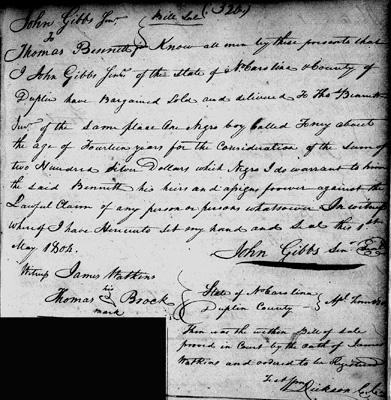 John Gibbs Senr. } Bill Sale (320)
To
Thomas Bennett Jr Know all men by these presents that
I John Gibbs Senr. of the State of No Carolina & County of
Duplin have Bargained Sold and delivered To Tho Bennett
Junr. of the same place One Negro boy Called Toney about
the age of Fourteen years for the Consideration of the Sum of
two Hundred Silver Dollars which Negro I do warrant to him
the said Bennett his heirs and assigns forever against the
Lawful Claim of any person or persons whatsoever In witness
whereof I have Hereunto Set my hand and Seal this 1st
May 1804.
John Gibbs Senr
Witness James Watkins
his
Thomas Brock
mark
State of No Carolina
Duplin County
Then was the within Bill of Sale
proved in Court by the oath of James
Watkins and ordered to be Registered
Test
Dickson